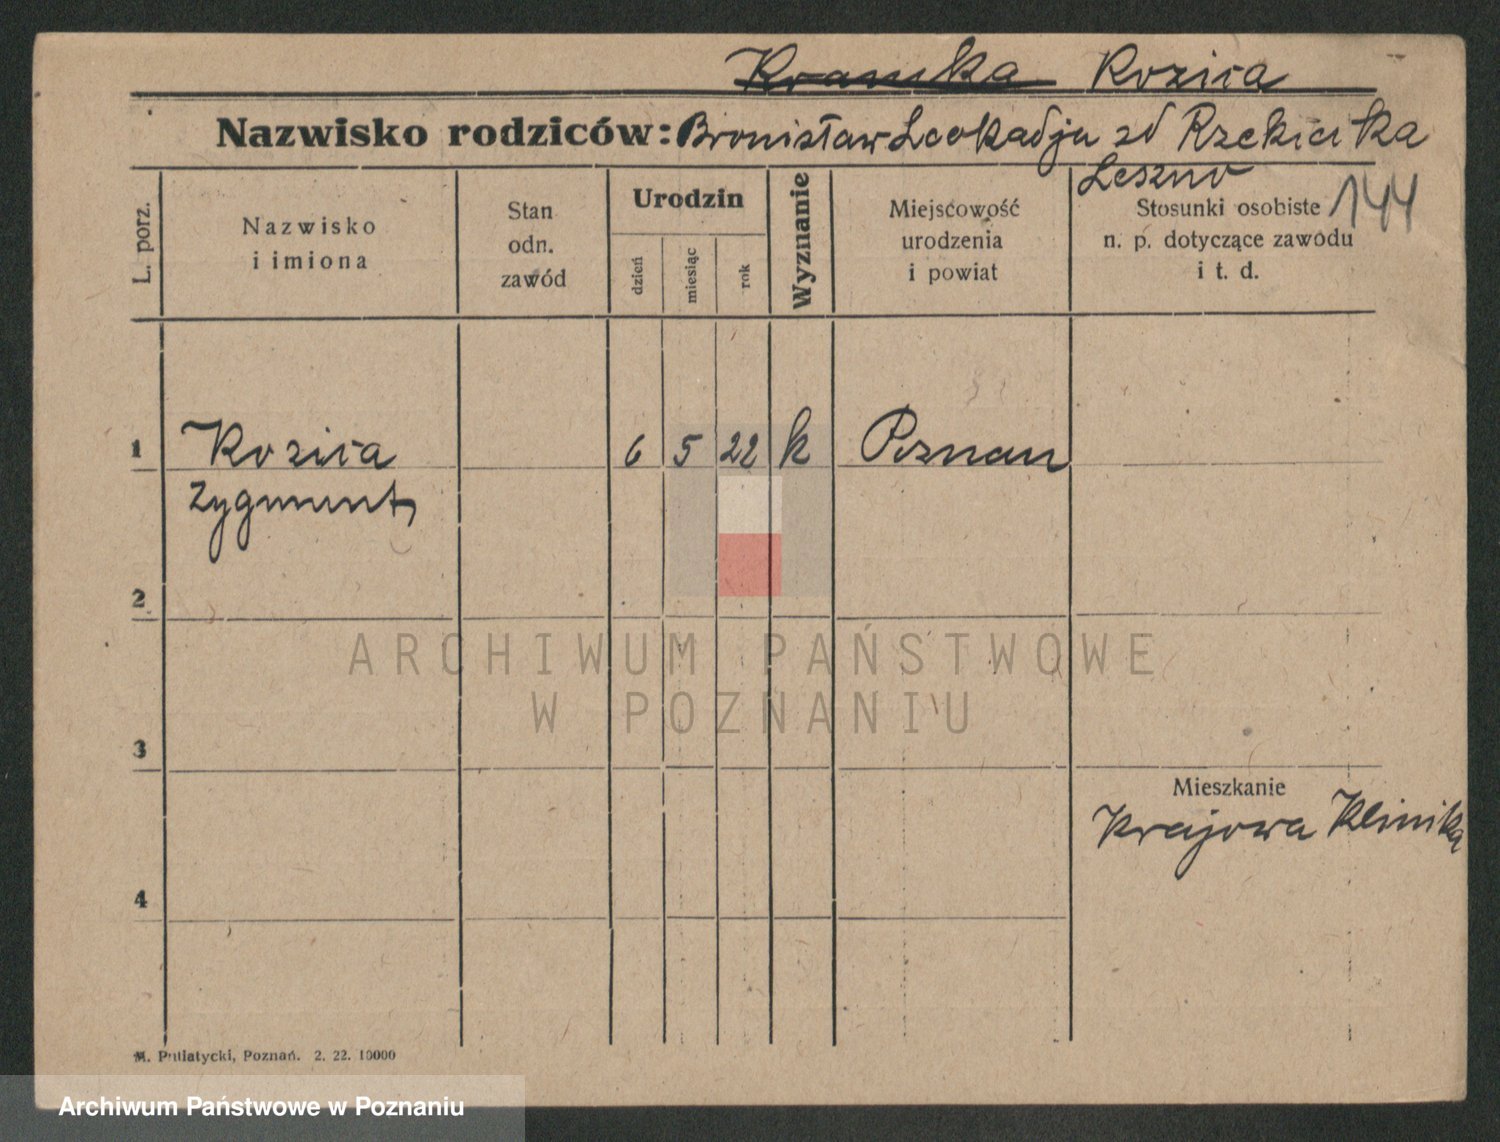 Kozica
Nazwisko rodziców: Bronisław Leokadja zd
Leszno
144
L. porz.
Nazwisko
i imiona
Stan
odn.
zawód
Urodzin
dzień
miesiąc
rok
Wyznanie
Miejscowość
urodzenia
i powiat
Stosunki osobiste
n. p. dotyczące zawodu
i t. d.
1 Kozica 6 5 22 k Poznan
Zygmunt
2
ARCHIWUM PAŃSTWOWE
W POZNANIU
3
Mieszkanie
Krajowa Klinika
4
M. Putiatycki, Poznań. 2. 22. 10000
Archiwum Państwowe w Poznaniu